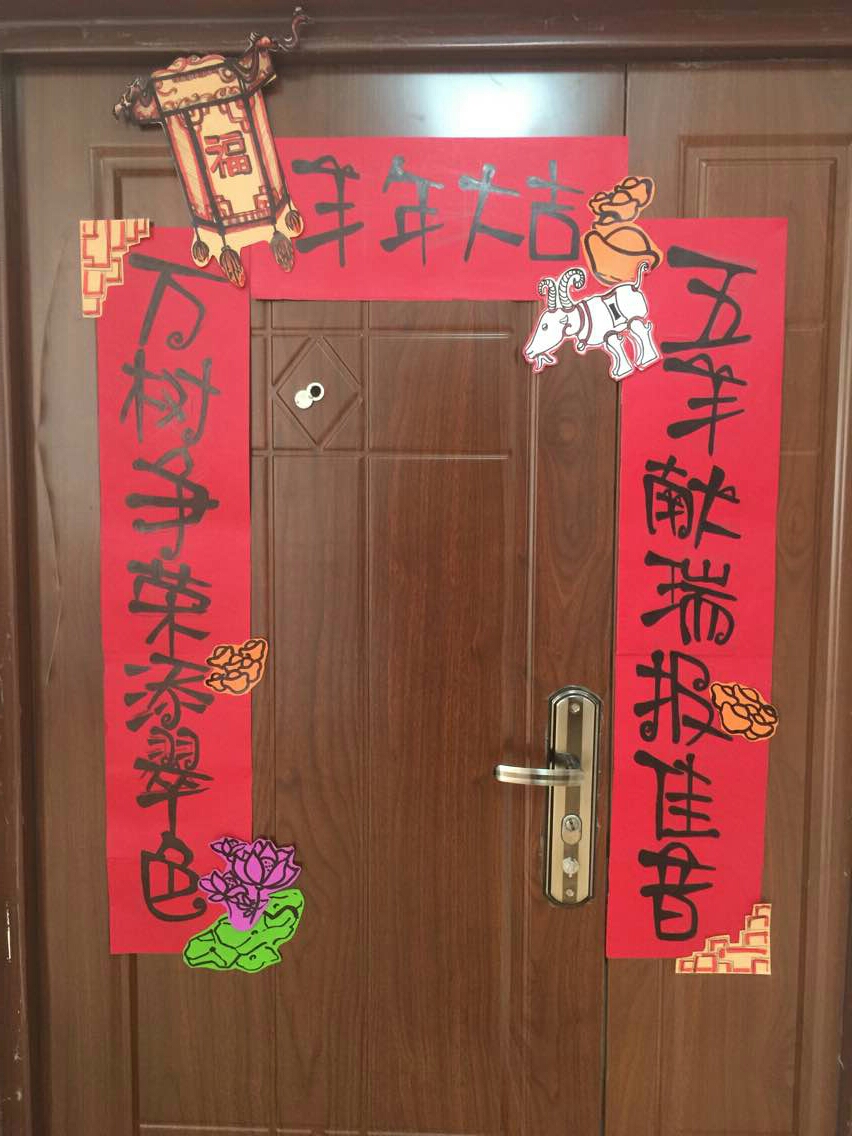 福
羊年大吉
五羊献瑞报佳音
万树争荣添翠色